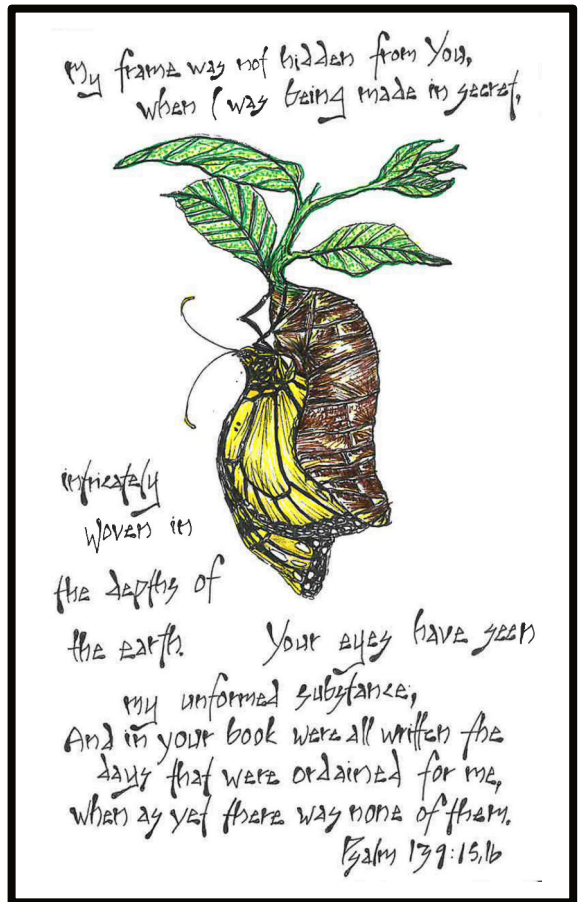 my frame was not hidden from You,
when I was being made in secret,
intricately
woven in
the depths of
the earth.
Your eyes have seen
my unformed substance;
And in your book were all written the
days that were ordained for me,
when as yet there was none of them.
Psalm 139:15,16